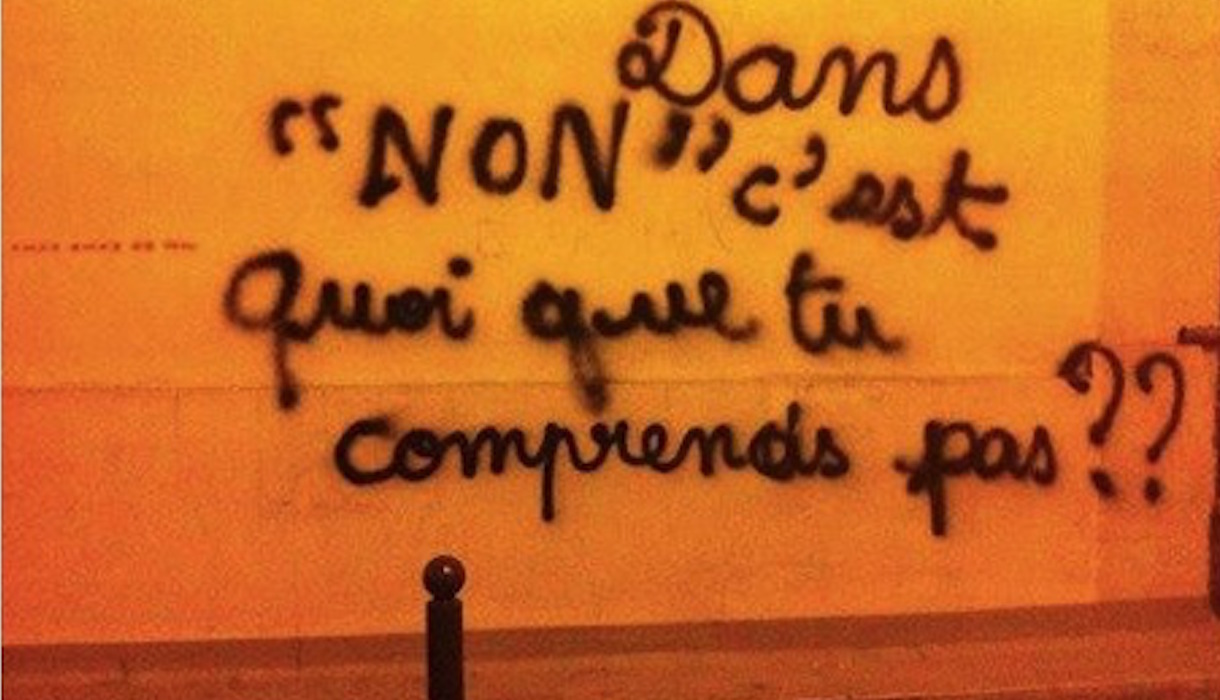 Dans
“NON” c’est
quoi que tu
comprends pas??